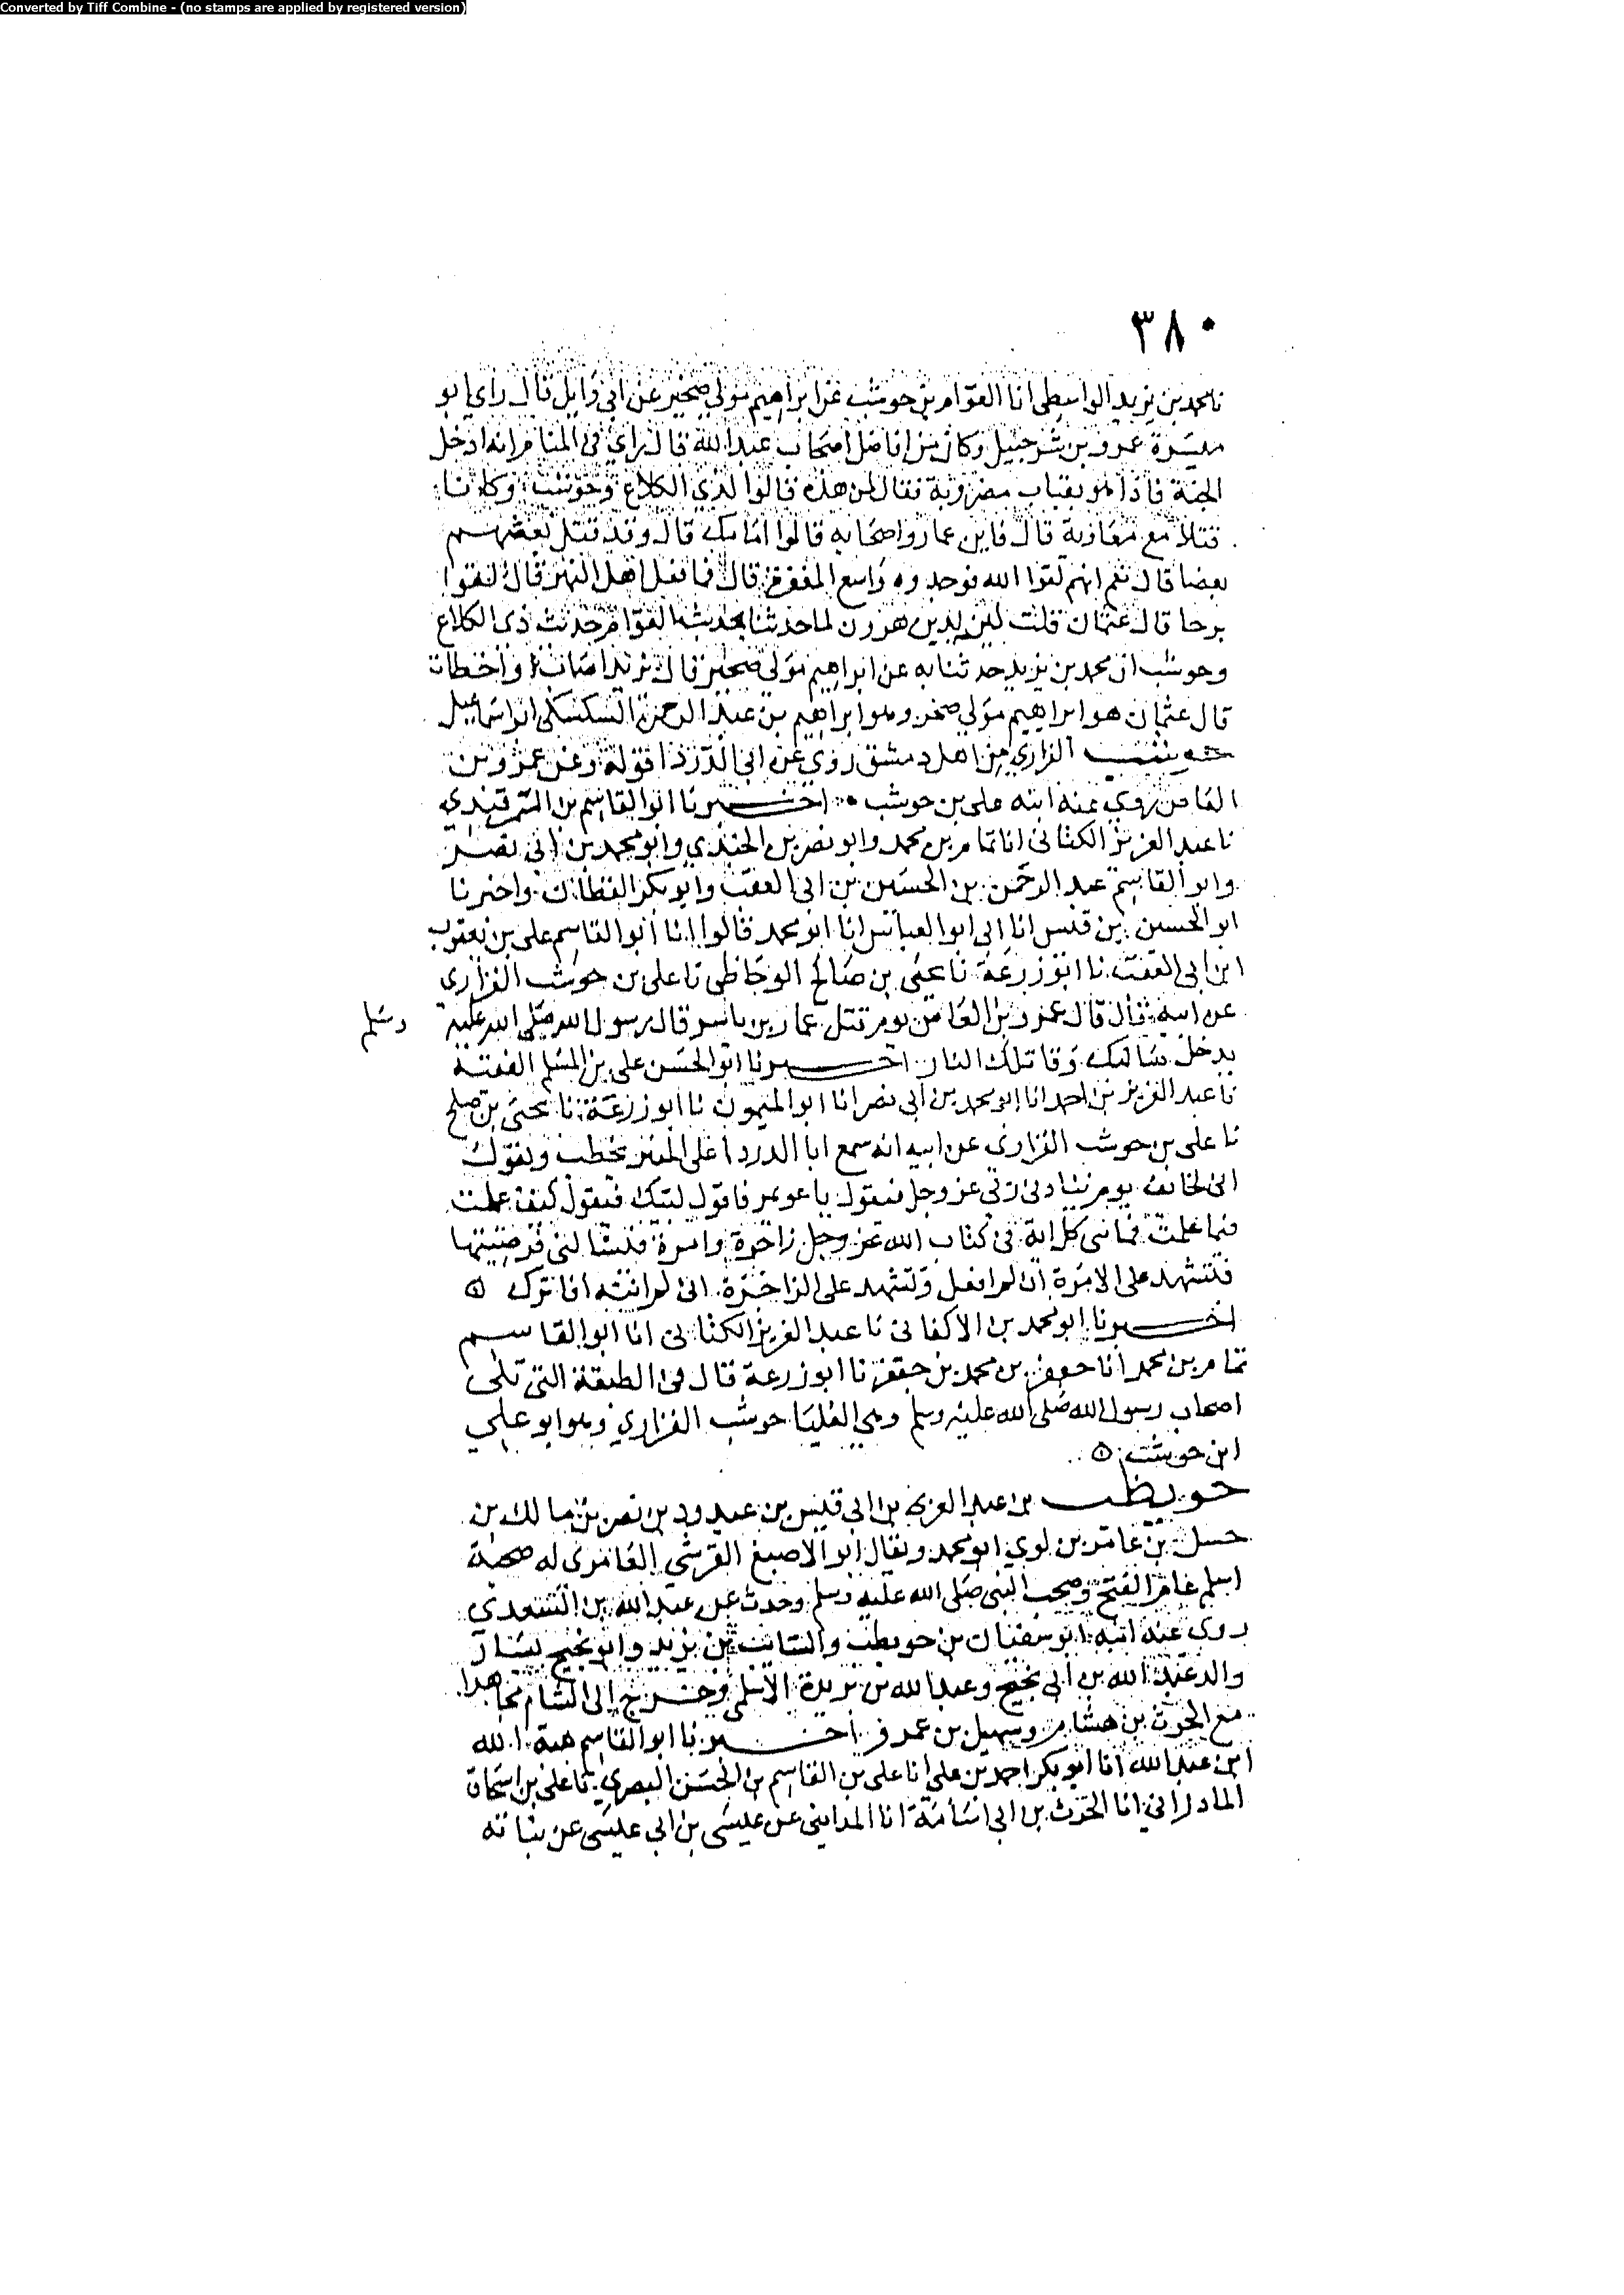 Converted by Tiff Combine - (no stamps are applied by registered version)
٣٨٠
نا محمد بن يزيد الواسطي انا العوام بن حوشب عن ابراهيم مولى صخير عن ابي وايل قال راى ابو
ميسرة عمرو بن شرحبيل وكان من افاضل اصحاب عبد الله قال راى في المنام انه ادخل
الجنة فاذا هو بقباب مضروبة فقال لمن هذه قالوا لذي الكلاع وحوشب وكانا
قتلا مع معاوية قال فاين عمار واصحابه قالوا امامك قال وقد قتل بعضهم
بعضا قال نعم انهم لقوا الله فوجدوه واسع المغفرة قال فما فعل اهل النهر قال لقوا
برحا قال عثمان قلت ليزيد بن هرون لما حدثنا بحديث العوام حديث ذي الكلاع
وحوشب ان محمد بن يزيد حدثنا به عن ابراهيم مولى صخير قال يزيد اصاب واخطات
قال عثمان هو ابراهيم مولى صخر وهو ابراهيم بن عبد الرحمن السكسكي ابو اسماعيل
حوشب الفزاري من اهل دمشق روى عن ابي الدرداء قوله وعن عمرو بن
العاص روى عنه ابنه علي بن حوشب اخبرنا ابو القاسم بن السمرقندي
نا عبد العزيز الكتاني انا تمام بن محمد وابو نصر بن الجندي وابو محمد بن ابي نصر
وابو القاسم عبد الرحمن بن الحسين بن ابي العقب وابو بكر القطان واخبرنا
ابو الحسين بن قبيس انا ابي ابو العباس انا ابو محمد قالوا انا ابو القاسم علي بن يعقوب
ابن ابي العقب نا ابو زرعة نا يحيى بن صالح الوحاظي نا علي بن حوشب الفزاري
عن ابيه قال قال عمرو بن العاص يوم قتل عمار بن ياسر قال رسول الله صلى الله عليه وسلم
يدخل سالبك وقاتلك النار اخبرنا ابو الحسن علي بن المسلم الفقيه
نا عبد العزيز بن احمد انا ابو محمد بن ابي نصر انا ابو الميمون نا ابو زرعة نا يحيى بن صلح
نا علي بن حوشب الفزاري عن ابيه انه سمع ابا الدردا على المنبر يخطب ويقول
اني لخائف يوم يناديني ربي عز وجل فيقول يا عويمر فاقول لبيك فيقول كيف عملت
فيما علمت فما تبقى كل اية في كتاب الله عز وجل زاجرة وامرة فتسالني فريضتها
فتشهد علي الامرة ان لم افعل وتشهد علي الزاجرة اني لم انته افاترك
اخبرنا ابو محمد بن الاكفاني نا عبد العزيز الكتاني انا ابو القاسم
تمام بن محمد انا جعفر بن محمد بن جعفر نا ابو زرعة قال في الطبقة التي تلي
اصحاب رسول الله صلى الله عليه وسلم وهي العليا حوشب الفزاري وهو ابو علي
ابن حوشب
حويطب بن عبد العزى بن ابي قيس بن عبد ود بن نصر بن مالك بن
حسل بن عامر بن لوي ابو محمد ويقال ابو الاصبغ القرشي العامري له صحبة
اسلم عام الفتح وصحب النبي صلى الله عليه وسلم وحدث عن عبد الله بن السعدي
روى عنه ابنه ابو سفيان بن حويطب والسائب بن يزيد وابو نجيح يسار
والد عبد الله بن ابي نجيح وعبد الله بن بريدة الاسلمي وخرج الى الشام مجاهدا
مع الحرث بن هشام وسهيل بن عمرو اخبرنا ابو القاسم هبة الله
ابن عبد الله انا ابو بكر احمد بن علي انا علي بن القاسم بن الحسن البصري نا علي بن اسحاق
المادراني انا الحرث بن ابي اسامة انا المدايني عن عيسى بن ابي عيسى عن نباته